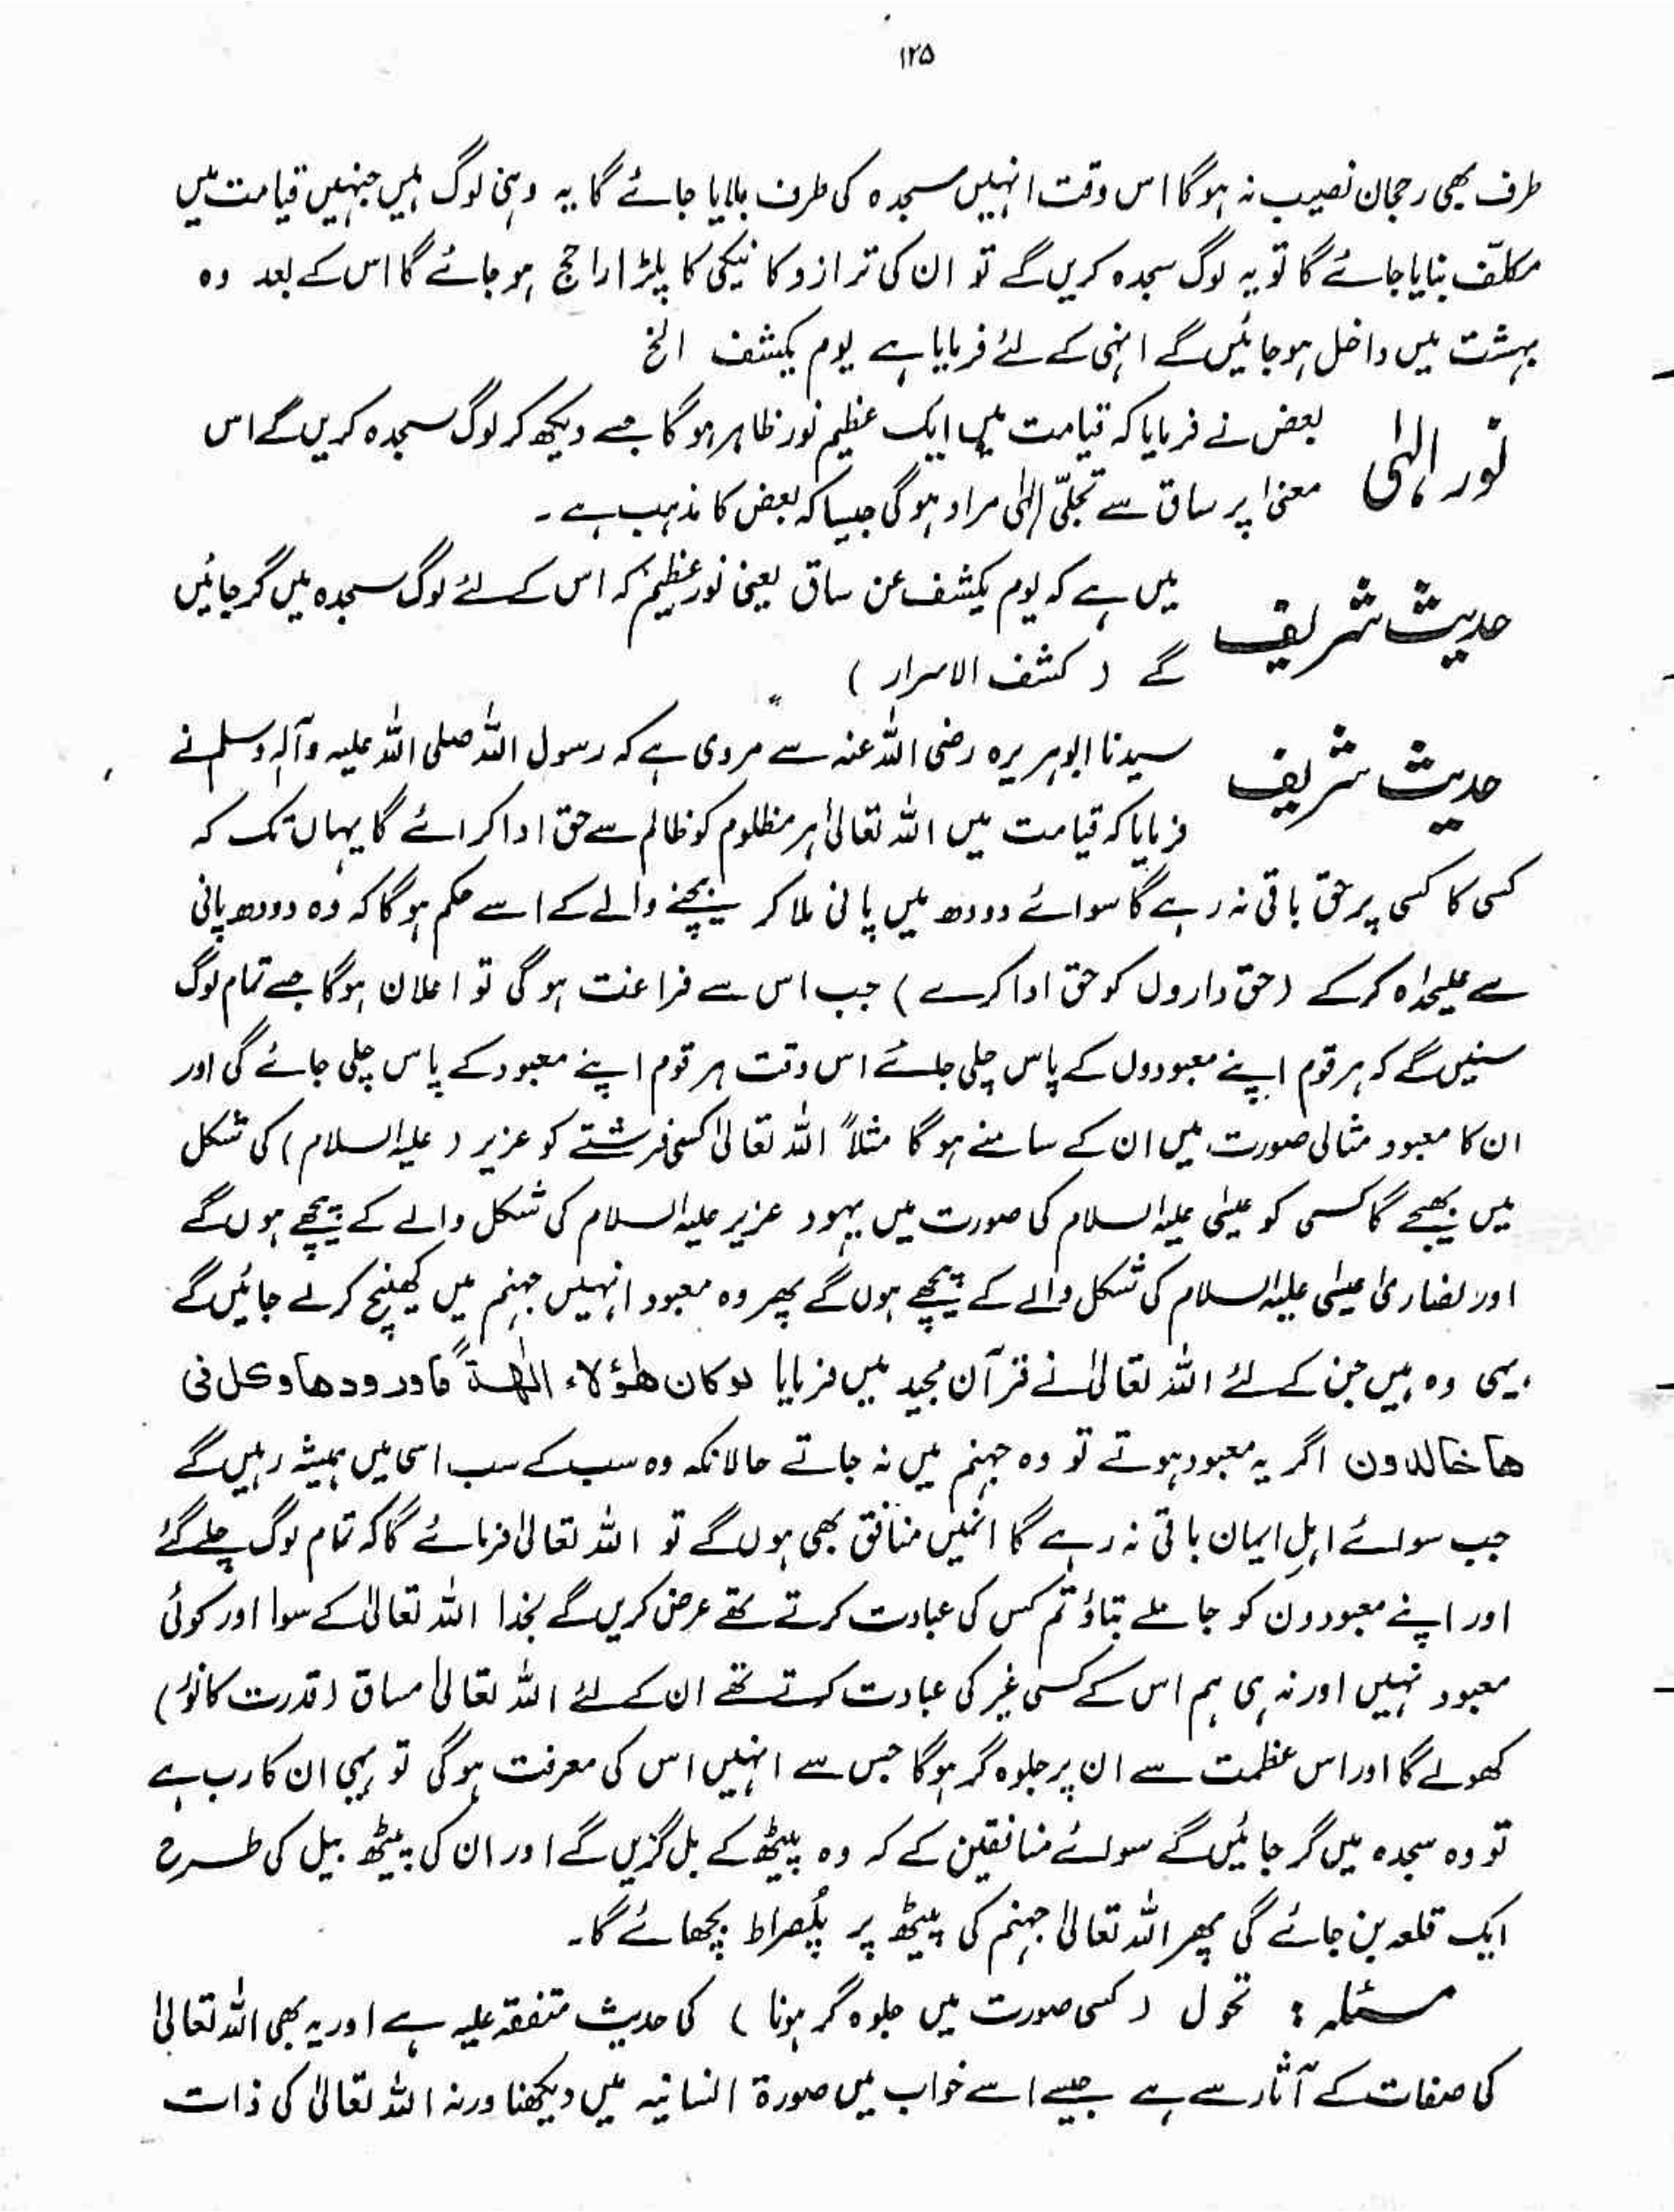 ۱۲۵
طرف بھی رجحان نصیب نہ ہوگا اس وقت انہیں سجدہ کی طرف بلایا جائے گا یہ وہی لوگ ہیں جنہیں قیامت میں
مکلّف بنایا جائے گا تو یہ لوگ سجدہ کریں گے تو ان کی ترازو کا نیکی کا پلڑا راجح ہو جائے گا اس کے بعد وہ
بہشت میں داخل ہو جائیں گے انہی کے لئے فرمایا ہے یوم یکشف الخ
نور الہٰی
بعض نے فرمایا کہ قیامت میں ایک عظیم نور ظاہر ہوگا جسے دیکھ کر لوگ سجدہ کریں گے اس
معنیٰ پر ساق سے تجلّی الٰہی مراد ہوگی جیسا کہ بعض کا مذہب ہے ۔
حدیث شریف
میں ہے کہ یوم یکشف عن ساق یعنی نور عظیم کہ اس کے لئے لوگ سجدہ میں گر جائیں
گے ( کشف الاسرار )
حدیث شریف
سیدنا ابوہریرہ رضی اللہ عنہ سے مروی ہے کہ رسول اللہ صلی اللہ علیہ وآلہ وسلم نے
فرمایا کہ قیامت میں اللہ تعالیٰ ہر مظلوم کو ظالم سے حق ادا کرائے گا یہاں تک کہ
کسی کا کسی پر حق باقی نہ رہے گا سوائے دودھ میں پانی ملا کر بیچنے والے کے اسے حکم ہوگا کہ وہ دودھ پانی
سے علیحداہ کرکے (حق داروں کو حق ادا کرے ) جب اس سے فراغت ہوگی تو اعلان ہوگا جسے تمام لوگ
سنیں گے کہ ہر قوم اپنے معبودوں کے پاس چلی جائے اس وقت ہر قوم اپنے معبود کے پاس چلی جائے گی اور
ان کا معبود مثالی صورت میں ان کے سامنے ہوگا مثلاً اللہ تعالیٰ کسی فرشتے کو عزیر ( علیہ السلام ) کی شکل
میں بھیجے گا کسی کو عیسٰی علیہ السلام کی صورت میں یہود عزیر علیہ السلام کی شکل والے کے پیچھے ہوں گے
اور نصاریٰ عیسٰی علیہ السلام کی شکل والے کے پیچھے ہوں گے پھر وہ معبود انہیں جہنم میں کھینچ کر لے جائیں گے
یہی وہ ہیں جن کے لئے اللہ تعالیٰ نے قرآن مجید میں فرمایا لو کان ھٰؤلاء الٰھۃً ما ورودھا وکل فی
ھا خالدون اگر یہ معبود ہوتے تو وہ جہنم میں نہ جاتے حالانکہ وہ سب کے سب اسی میں ہمیشہ رہیں گے
جب سوائے اہلِ ایمان باقی نہ رہے گا انمیں منافق بھی ہوں گے تو اللہ تعالیٰ فرمائے گا کہ تمام لوگ چلے گئے
اور اپنے معبودوں کو جا ملے بتاؤ تم کس کی عبادت کرتے تھے عرض کریں گے بخدا اللہ تعالیٰ کے سوا اور کوئی
معبود نہیں اور نہ ہی ہم اس کے کسی غیر کی عبادت کرتے تھے ان کے لئے اللہ تعالیٰ ساق (قدرت کا نوُر)
کھولے گا اور اس عظمت سے ان پر جلوہ گر ہوگا جس سے انہیں اس کی معرفت ہوگی تو یہی ان کا رب ہے
تو وہ سجدہ میں گر جائیں گے سوائے منافقین کے کہ وہ پیٹھ کے بل گریں گے اور ان کی پیٹھ بیل کی طرح
ایک قلعہ بن جائے گی پھر اللہ تعالیٰ جہنم کی پیٹھ پر پُلصراط بچھائے گا۔
مسئلہ : تحول ( کسی صورت میں جلوہ گر ہونا ) کی حدیث متفقہ علیہ ہے اور یہ بھی اللہ تعالیٰ
کی صفات کے آثار سے ہے جیسے اسے خواب میں صورۃ انسانیہ میں دیکھنا ورنہ اللہ تعالیٰ کی ذات